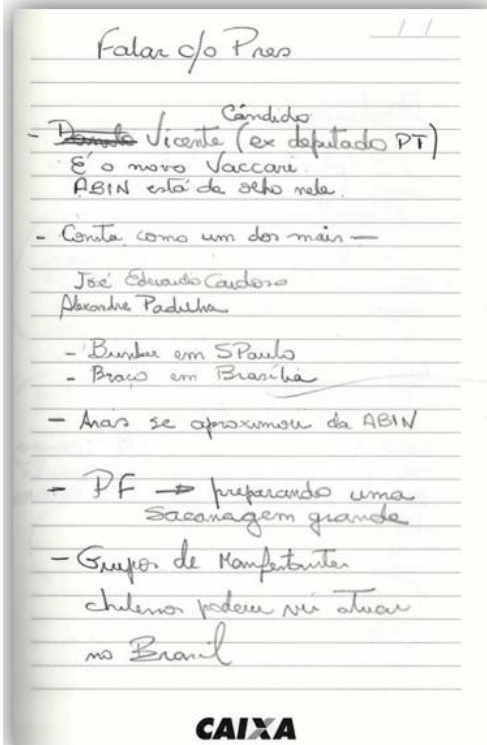 / /
Falar c/o Pres
Cândido
- Vicente (ex deputado PT)
É o novo Vaccari.
ABIN está de olho nele.
- Consta como um dos mais —
José Eduardo Cardoso
Alexandre Padilha
- Bunker em SPaulo
- Braço em Brasília
- Aras se aproximou da ABIN
- PF → preparando uma
sacanagem grande
- Grupos de Manfestantes
chilenos podem vir atuar
no Brasil
CAIXA